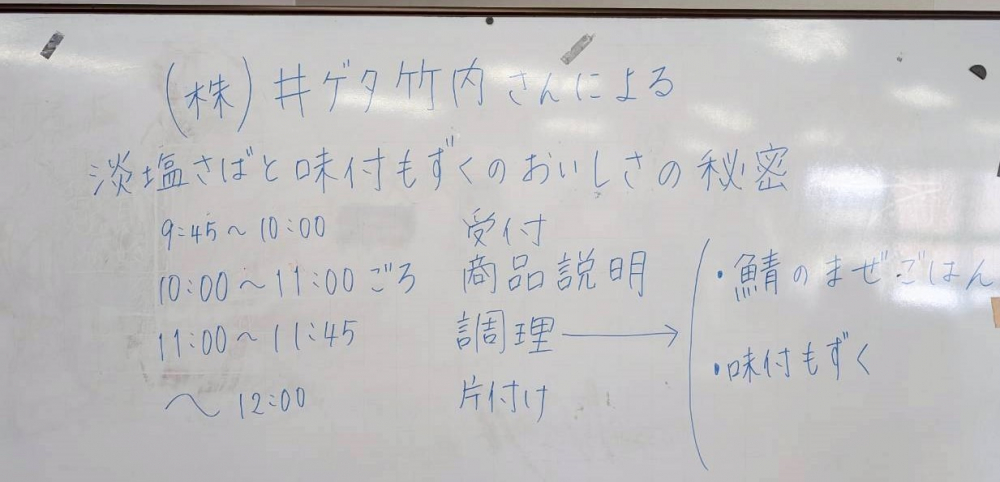 (株)井ゲタ竹内さんによる
淡塩さばと味付もずくのおいしさの秘密
9:45～10:00 受付
10:00～11:00ごろ 商品説明
11:00～11:45 調理→
・鯖のまぜごはん
・味付もずく
～12:00 片付け